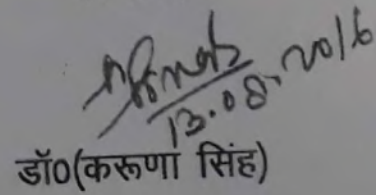 13.08.2016
डॉ0(करूणा सिंह)